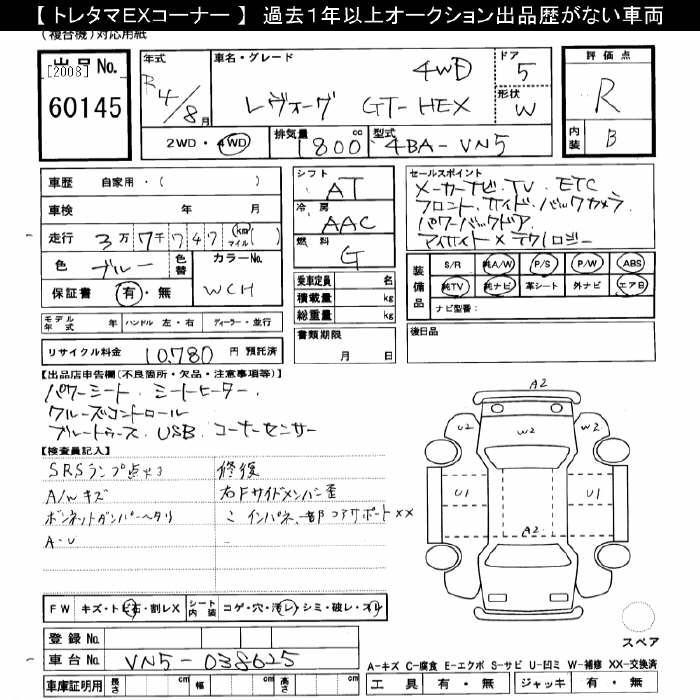 【トレタマEXコーナー】 過去1年以上オークション出品歴がない車両
(複合機)対応用紙
出品No.
[2008]
60145
年式
R4/8月
車名・グレード
4WD
レヴォーグ GT-HEX
ドア
5
形状
W
評価点
R
内装
B
2WD・4WD
排気量
1800cc
型式
4BA-VN5
車歴 自家用・( )
車検 年 月
走行 3万7千747(km マイル)( )
色 ブルー
色替
カラーNo.
WCH
保証書 有・無
シフト
AT
冷房
AAC
燃料
G
乗車定員 名
積載量 kg
総重量 kg
セールスポイント
メーカーナビ.TV.ETC
フロント.サイド.バックカメラ
パワーバックドア
アイサイトXテクノロジー
装備品
S/R 純A/W P/S P/W ABS
純TV 純ナビ 革シート 外ナビ エアB
ナビ型番:
モデル年式 年 ハンドル 左・右 ディーラー・並行
書類期限
月 日
後日品
リサイクル料金 10,780 円 預託済
【出品店申告欄(不良箇所・欠品・注意事項等)】
パワーシート.シートヒーター.
クルーズコントロール
ブルートゥース.USB.コーナーセンサー
【検査員記入】
SRSランプ点火3
A/Wキズ
ボンネットダンパーヘタリ
A-U
修復
右Fサイドメンバー歪
こ インパネ.一部コアサポートXX
A2
U2
W2
U2
U1
U1
A2
FW キズ・トビ石・割レX
シート内装 コゲ・穴・汚レ・シミ・破レ・スレ
登録No.
車台No. VN5-038625
車庫証明用 長さ cm 幅 cm 高さ cm
スペア
A-キズ C-腐食 E-エクボ S-サビ U-凹ミ W-補修 XX-交換済
工具 有・無 ジャッキ 有・無